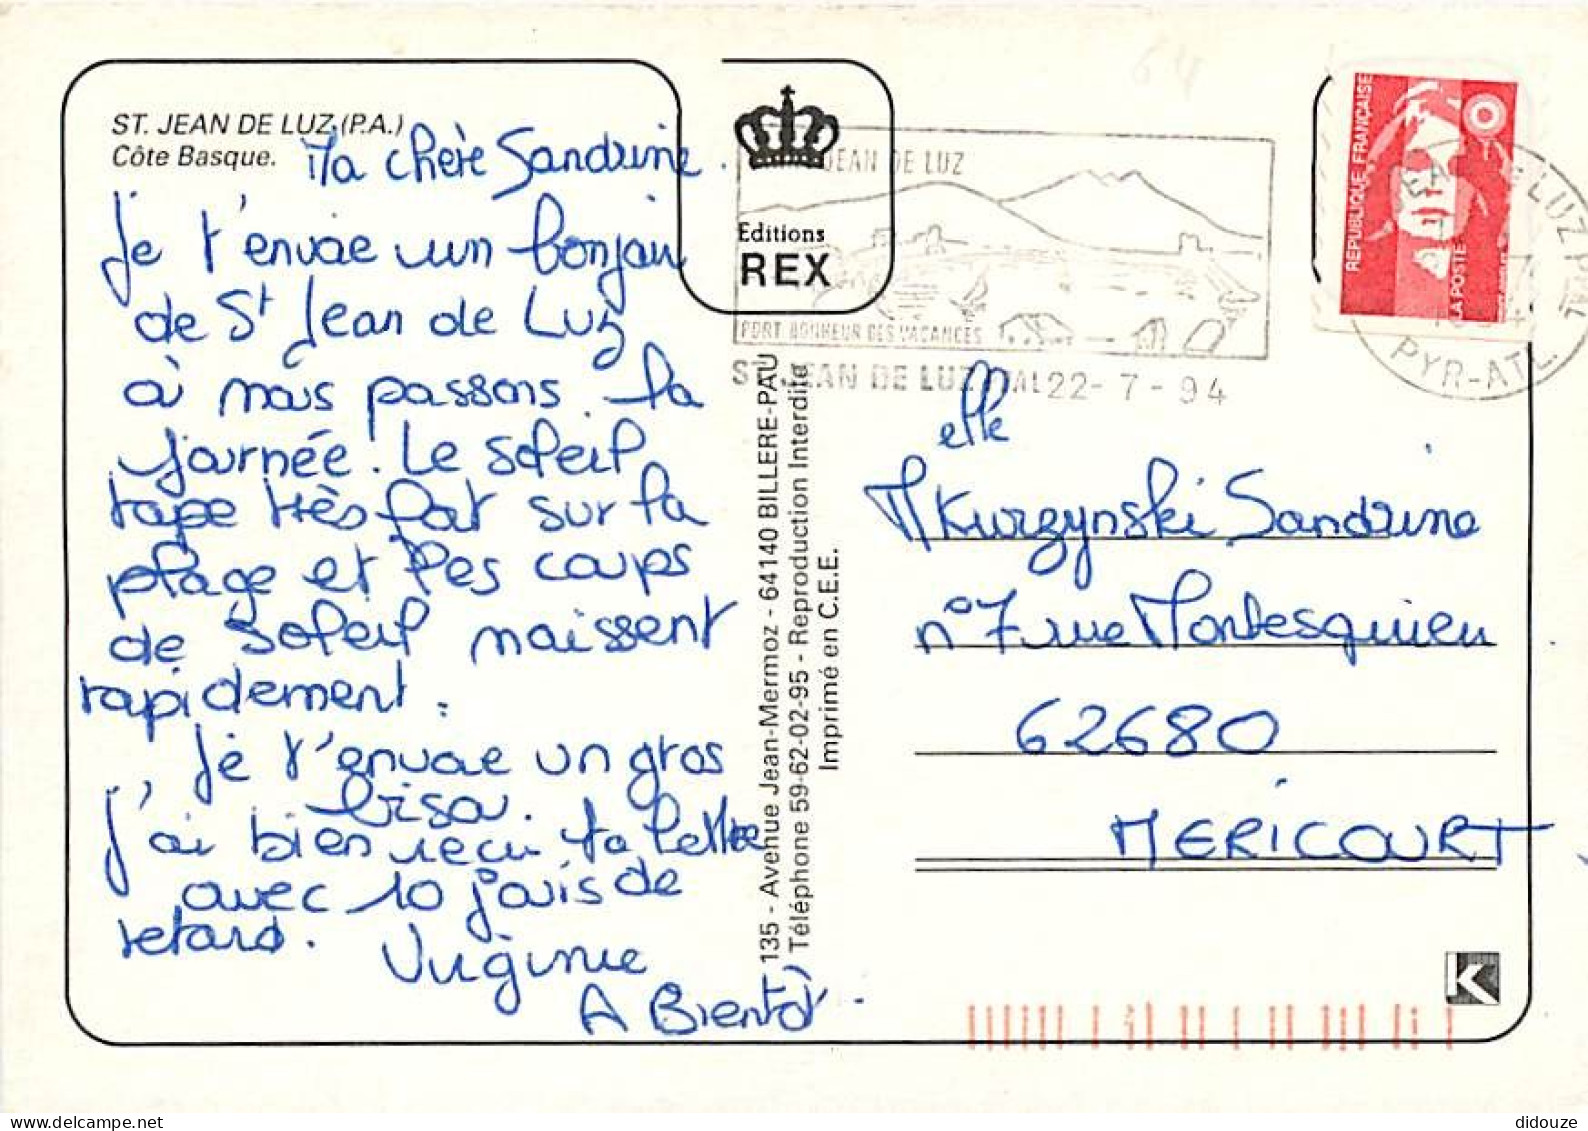 64
ST. JEAN DE LUZ (P.A.)
Côte Basque.
Ma chère Sandrine.
Je t'envoie un bonjour
de St Jean de Luz
où nous passons la
journée. Le soleil
tape très fort sur la
plage et les coups
de soleil naissent
rapidement.
Je t'envoie un gros
bisou.
J'ai bien reçu ta lettre
avec 10 jours de
retard.
Virginie
A Bientôt.
Editions
REX
135 - Avenue Jean-Mermoz - 64140 BILLERE-PAU
Téléphone 59-62-02-95 - Reproduction Interdite
Imprimé en C.E.E.
JEAN DE LUZ
PORT BONHEUR DES VACANCES
ST JEAN DE LUZ PAL 22-7-94
REPUBLIQUE FRANÇAISE
LA POSTE
LUZ PPAL
PYR-ATL.
elle
M Kurzynski Sandrine
n°7 rue Montesquieu
62680
MERICOURT
K
didouze